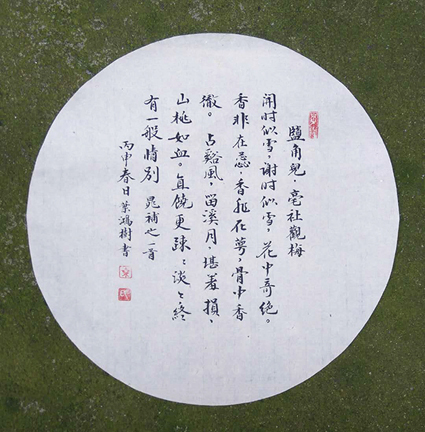 鹽角兒 亳社觀梅
開时似雪,谢时似雪,花中奇绝。
香非在蕊,香非在萼,骨中香
徹。占谿风,留溪月,堪羞損、
山桃如血。直饒更疎〻淡〻終
有一般情别 晁補之一首
丙申春日葉鴻樹書